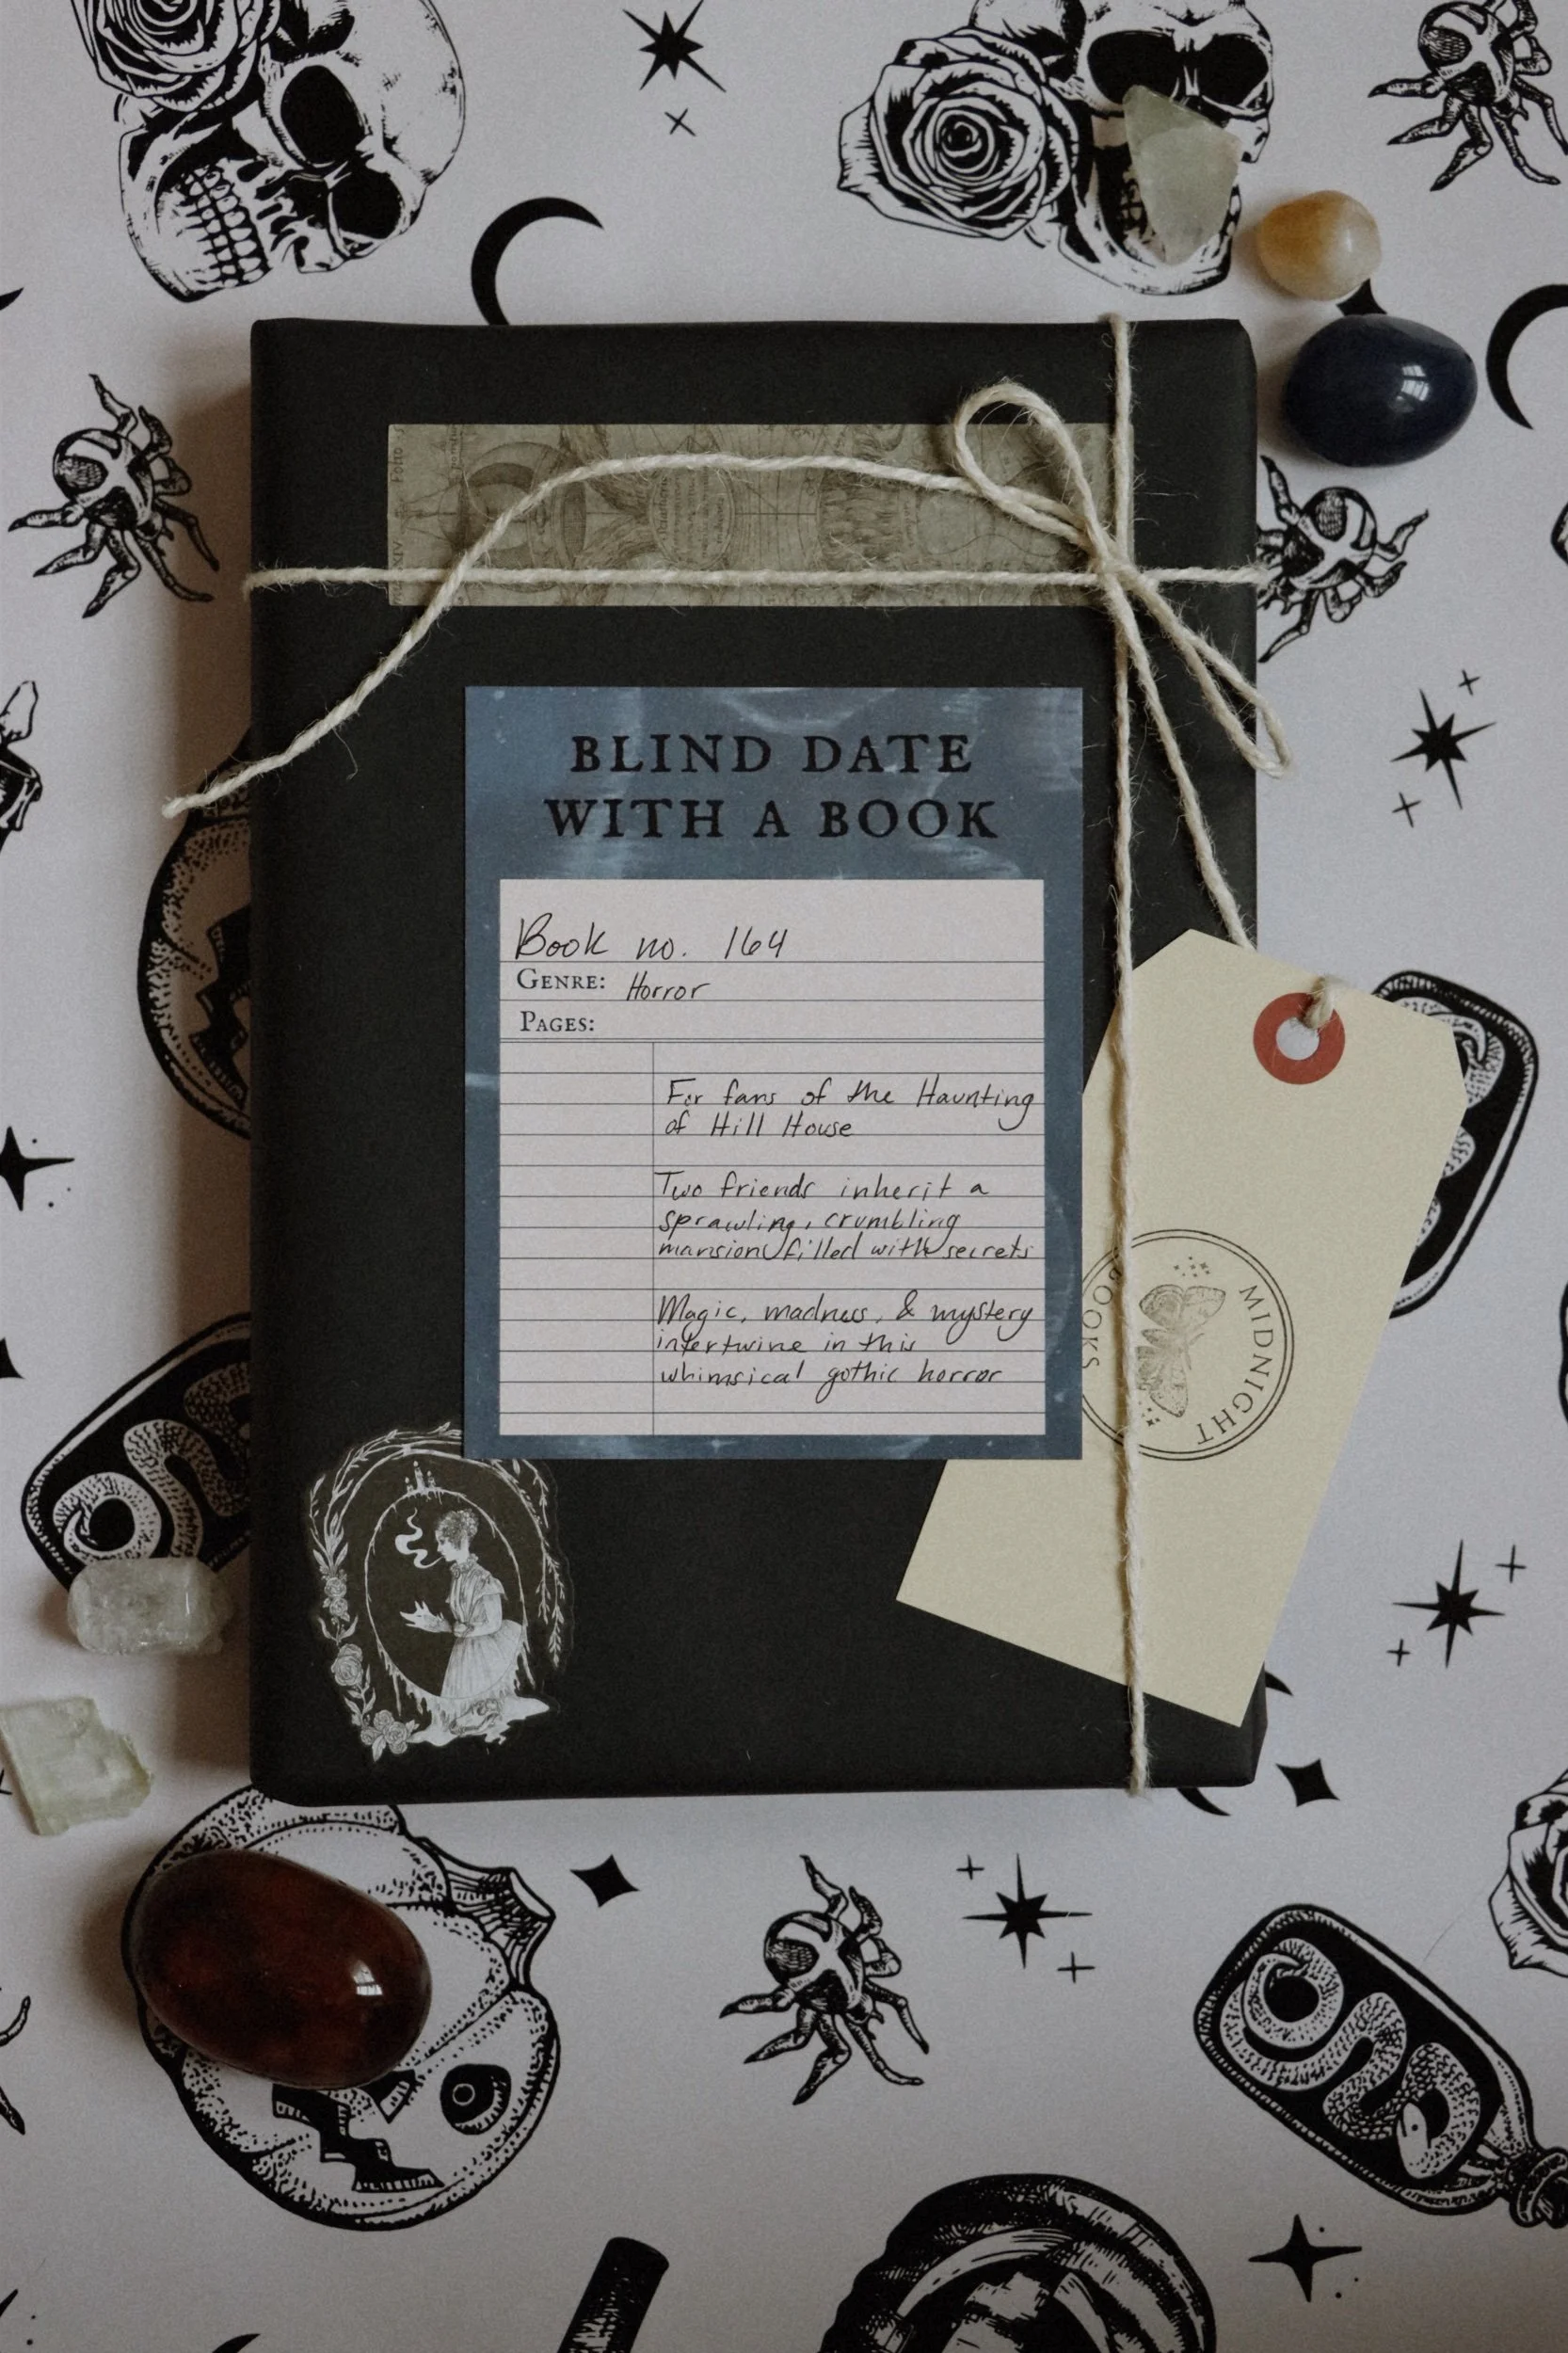 BLIND DATE
WITH A BOOK
Book no. 164
GENRE: Horror
PAGES:
For fans of the Haunting
of Hill House
Two friends inherit a
sprawling, crumbling
mansion filled with secrets
Magic, madness, & mystery
intertwine in this
whimsical gothic horror
MIDNIGHT
BOOKS